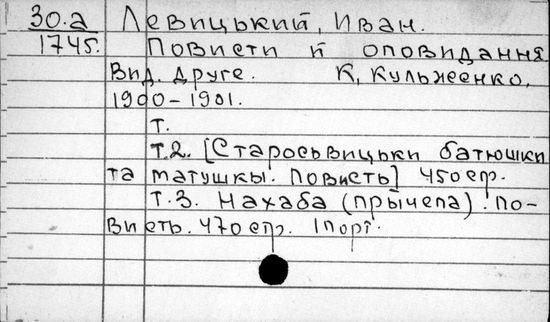 30.а Левицький, Иван.
1745. Повисти й оповидання.
Вид. друге. К, Кульженко,
1900-1901.
Т.
Т.2. [Старосьвицьки батюшки
та матушкы. Повисть] 450 стр.
Т.3. Нахаба (прычепа). По-
висть. 470 стр. 1 порт.